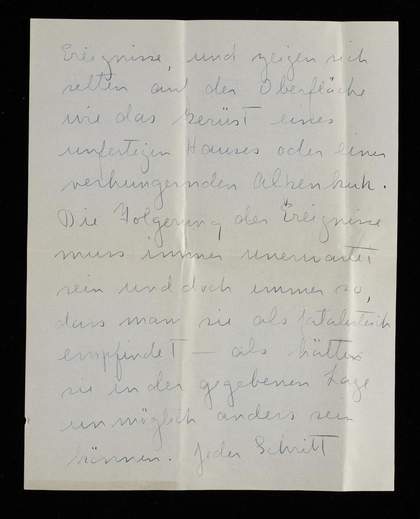 Ereignisse, und zeigen sich
selten auf der Oberfläche
wie das Gerüst eines
unfertigen Hauses oder einer
verhungernden Alpenkuh.
Die Folgerung der Ereignisse
muss immer unerwartet
sein und doch immer so,
dass man sie als fatalistisch
empfindet — als hätten
sie in der gegebenen Lage
unmöglich anders sein
können. Jeder Schritt